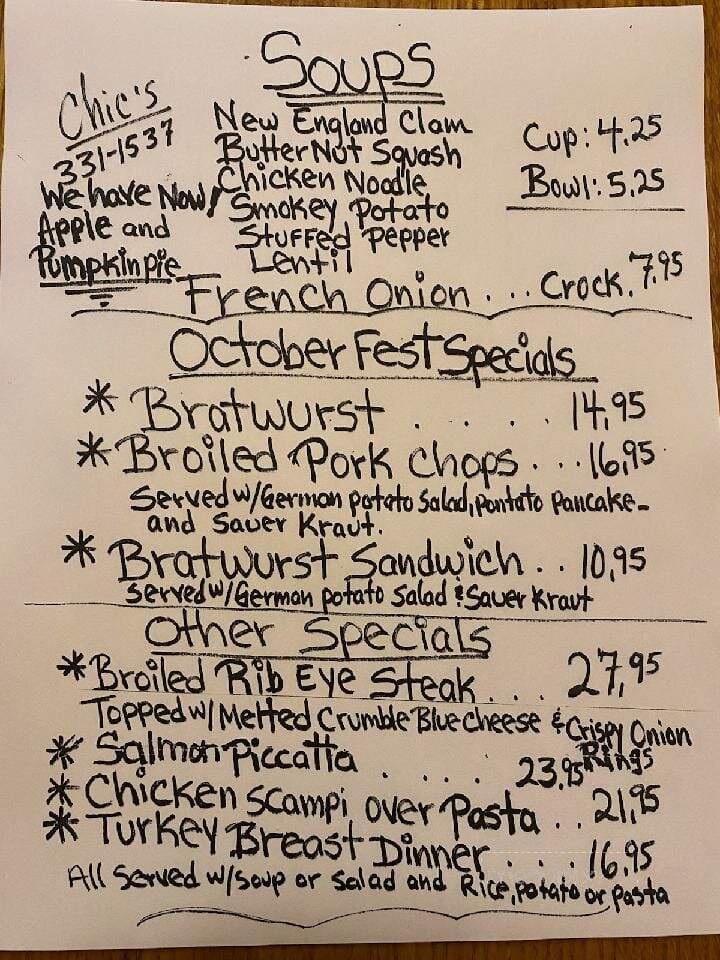 Soups
Chic's
331-1537
We have Now!
Apple and
Pumpkin pie
New England Clam
Butter Nut Squash
Chicken Noodle
Smokey Potato
Stuffed Pepper
Lentil
Cup: 4.25
Bowl: 5.25
French Onion... Crock. 7.95
October Fest Specials
* Bratwurst . . . . . 14.95
* Broiled Pork Chops . . . 16.95
Served w/German potato Salad, pontato pancake-
and Sauer Kraut.
* Bratwurst Sandwich . . 10,95
Served w/German potato Salad & Sauer Kraut
Other Specials
* Broiled Rib Eye Steak . . . 27,95
Topped w/ Metted Crumble Blue Cheese & Crispy Onion
Rings
* Salmon Piccatta . . . . 23.95
* Chicken Scampi over Pasta . . 21,95
* Turkey Breast Dinner . . . 16,95
All Served w/soup or Salad and Rice, potato or pasta